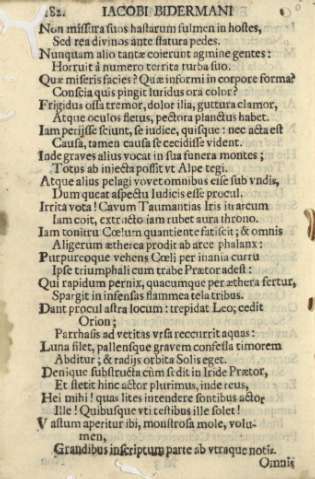 182. IACOBI BIDERMANI
Non missura suos hastarum fulmen in hostes,
Sed rea divinos ante statura pedes.
Nunquam alio tantæ coierunt agmine gentes:
Horruit à numero territa turba suo.
Quæ miseris facies? Quæ informi in corpore forma?
Conscia quis pingit luridus ora color?
Frigidus ossa tremor, dolor ilia, guttura clamor,
Atque oculos fletus, pectora planctus habet.
Iam perijsse sciunt, se iudice, quisque: nec acta est
Causa, tamen causa se cecidisse vident.
Inde graves alius vocat in sua funera montes;
Totus ab iniecta possit vt Alpe tegi.
Atque alius pelagi vovet omnibus esse sub vndis,
Dum queat aspectu Iudicis esse procul.
Irrita vota! Cavum Taumantias Iris in arcum
Iam coit, extructo iam rubet aura throno.
Iam tonitru Cœlum quatiente fatiscit; & omnis
Aligerum ætherea prodit ab arce phalanx:
Purpureoque vehens Cœli per inania curru
Ipse triumphali cum trabe Prætor adest:
Qui rapidum pernix, quacumque per æthera fertur,
Spargit in infensas flammea tela tribus.
Dant procul astra locum: trepidat Leo; cedit
Orion;
Parrhasis ad vetitas vrsa recurrit aquas:
Luna silet, pallensque gravem confessa timorem
Abditur; & radijs orbita Solis eget.
Denique substructa cùm sedit in Iride Prætor,
Et stetit hinc actor plurimus, inde reus,
Hei mihi! quas lites intendere sontibus actor
Ille! Quibusque vti testibus ille solet!
Vastum aperitur ibi, monstrosa mole, volu-
men,
Grandibus inscriptum parte ab vtraque notis.
Omnis